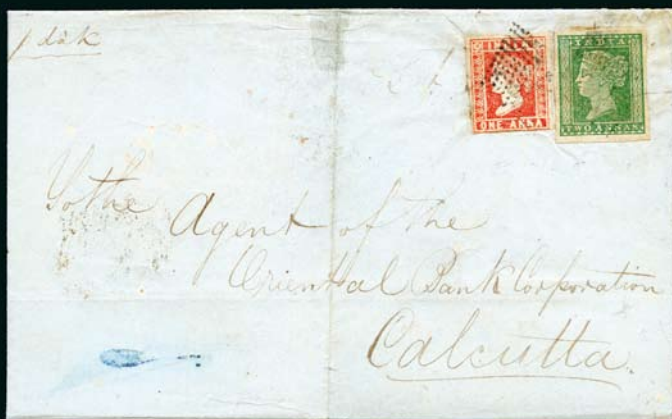 p dâk
INDIA
ONE ANNA
INDIA
TWO ANNAS
To the Agent of the
Oriental Bank Corporation
Calcutta.